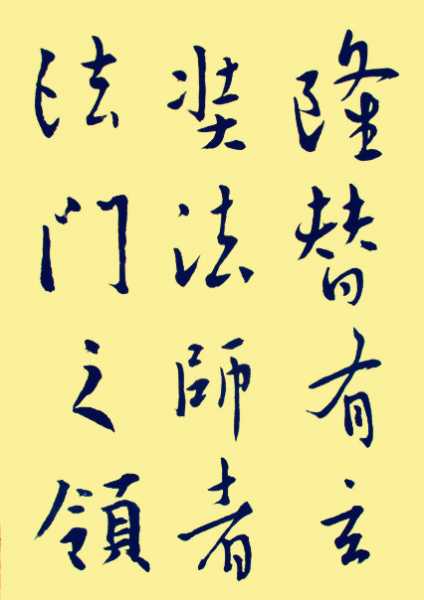 隆替有玄
奘法師者
法門之領